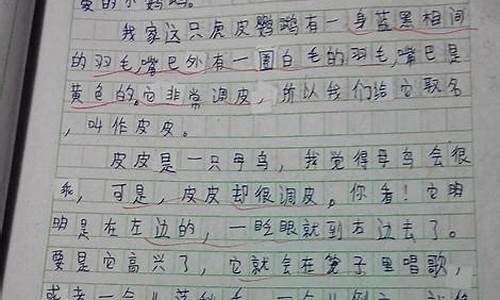 爱的小鹦鹉。
我家这只虎皮鹦鹉有一身蓝黑相间
的羽毛,嘴巴外有一圆白毛的羽毛,嘴巴是
黄色的。它非常调皮,所以我们给它取名
,叫作皮皮。
皮皮是一只母鸟,我觉得母鸟会很
乖,可是,皮皮却很调皮。你看!它明
明是在左边的,一眨眼就到右边去了。
要是它高兴了,它就会在笼子里唱歌,
或者一会儿荡秋千,一会儿倒立